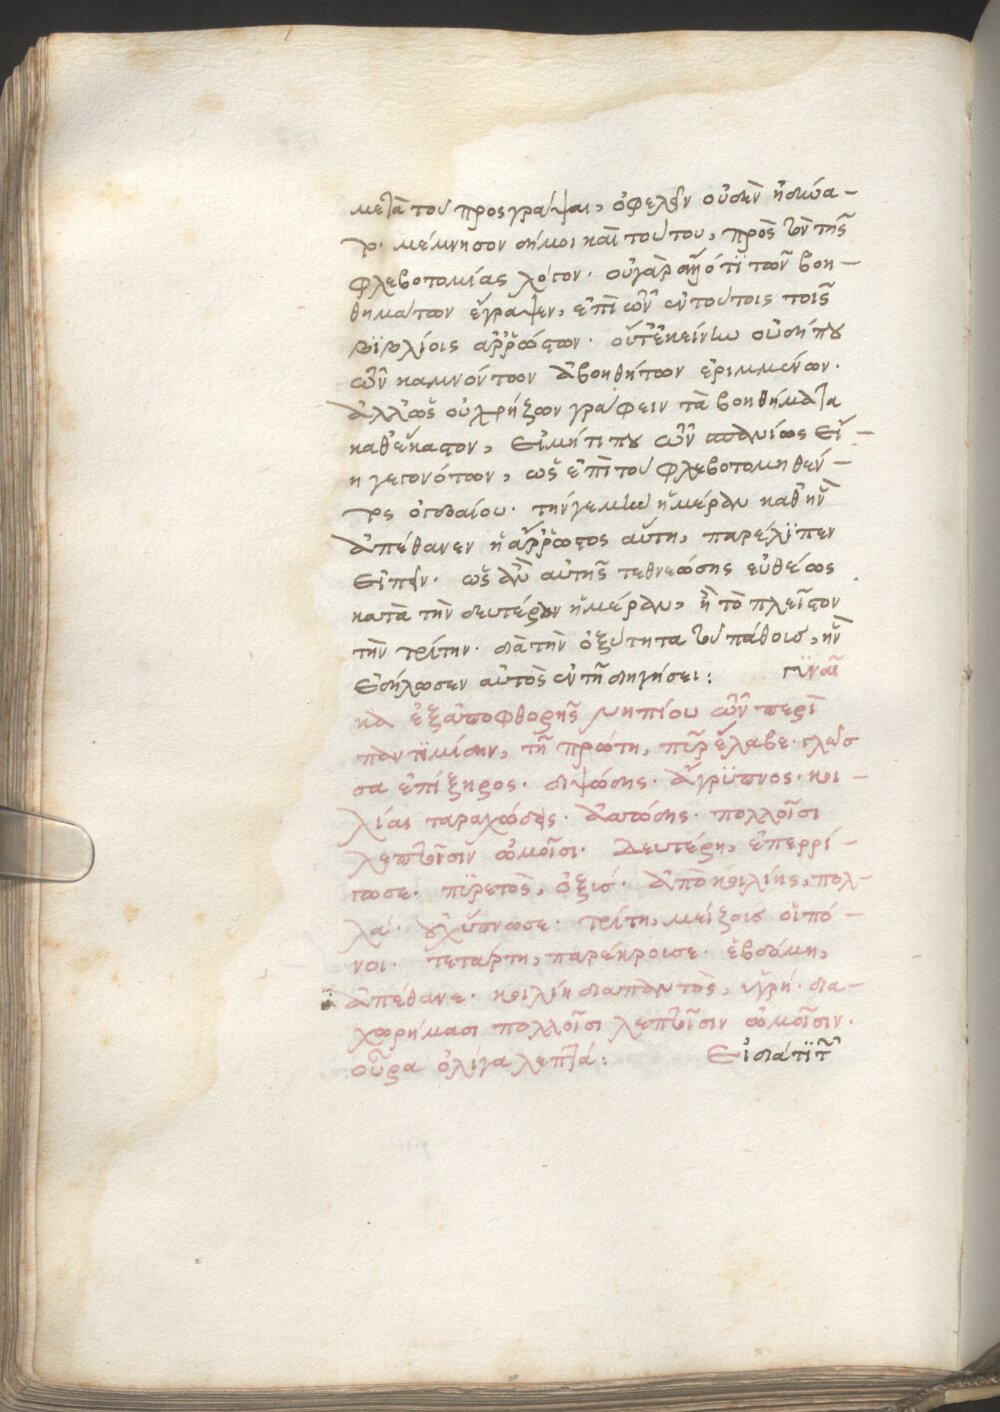 μετὰ τοῦ προσγράψαι, ὀφελεῖν οὐδὲν ἠδύνα-
το. μέμνησον δή μοι καὶ τούτου, πρὸς τὸν τῆς
φλεβοτομίας λόγον. οὐ γὰρ δὴ ὅτι τῶν βοη-
θημάτων ἔγραψεν, ἐπὶ τῶν ἐν τούτοις τοῖς
βιβλίοις ἀρρώστων. οὔτ' ἐκείνω οὐδήπου
τῶν καμνόντων ἀβοηθήτων ἐριμμένων.
ἀλλ' ὡς οὐ χρήζων γράφειν τὰ βοηθήματα
καθ' ἕκαστον, εἰ μή τι που τῶν σπανίως εἴ-
η γεγονότων, ὡς ἐπὶ τοῦ φλεβοτομηθέν-
τος ὀγδοαίου. τήν γε μὴν ἡμέραν καθ' ἣν
ἀπέθανεν ἡ ἄρρωστος αὕτη, παρέλιπεν
εἰπεῖν. ὡς ἂν αὐτῆς τεθνεώσης εὐθέως
κατὰ τὴν δευτέραν ἡμέραν, ἢ τὸ πλεῖστον
τὴν τρίτην. διὰ τὴν ὀξύτητα τοῦ πάθους, ἣν
ἐδήλωσεν αὐτὸς ἐν τῇ διηγήσει: Γυναῖ
κα ἐξ ἀποφθορῆς νηπίου τῶν περὶ
παντιμίδην, τῇ πρώτη, πῦρ ἔλαβε. γλῶσ
σα ἐπίξηρος. διψώδης. ἄγρυπνος. κοι-
λίαι ταραχώδης. ἀσώδης. πολλοῖσι
λεπτοῖσιν ὠμοῖσι. Δευτέρη, ἐπερρί-
γωσε. πυρετὸς, ὀξύς. ἀπὸ κοιλίης, πολ-
λά. οὐχ ὕπνωσε. τρίτη, μείζους οἱ πό-
νοι. τετάρτη, παρέκρουσε. ἑβδόμη,
ἀπέθανε. κοιλίη διαπαντὸς, ὑγρή. δια-
χωρήμασι πολλοῖσι λεπτοῖσιν ὠμοῖσιν.
οὖρα ὀλίγα λεπτά: Εἰ διά τι τ